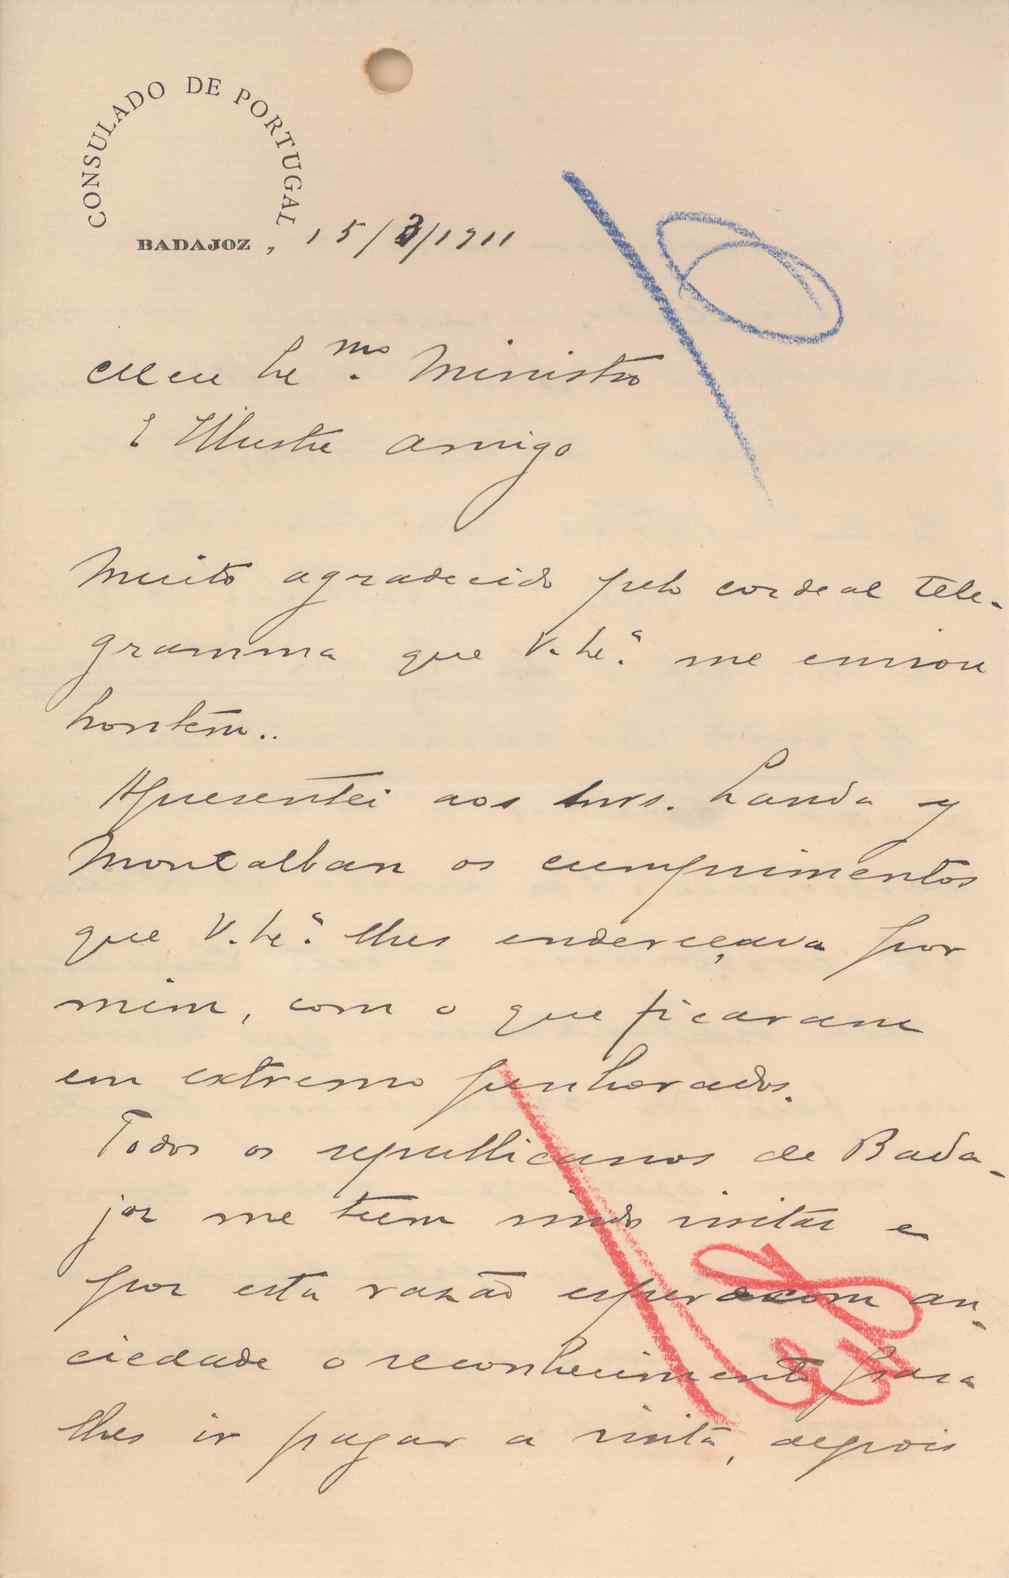 CONSULADO DE PORTUGAL
BADAJOZ, 15/3/1911
Meu Exmo. Ministro
E Illustre amigo
Muito agradecido pelo cordeal tele-
gramma que V. Exª. me enviou
hontem..
Apresentei aos Snrs. Landa y
Montalban os cumprimentos
que V. Exª. lhes endereçava por
mim, com o que ficaram
em extremo penhorados.
Todos os republicanos de Bada-
joz me teem vindo visitar e
por esta razão espero com an-
ciedade o reconhecimento para
lhes ir pagar a visita, depois